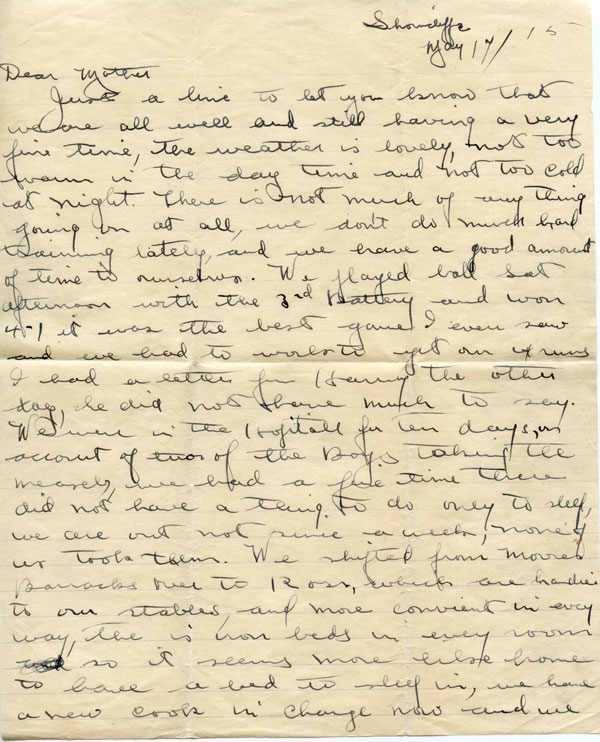 Shorncliffe
May 17/15
Dear Mother
Just a line to let you know that
we are all well and still having a very
fine time, the weather is lovely, not too
warm in the day time and not too cold
at night. There is not much of any thing
going on at all, we don't do much hard
training lately, and we have a good amount
of time to ourselves. We played ball Sat
afternoon with the 3rd Battery and won
4-1 it was the best game I ever saw
and we had to work to get our 4 runs
I had a letter from Harry the other
day, he did not have much to say.
We were in the Hospitall for ten days, on
account of two of the Boys taking the
measels, we had a fine time there
did not have a thing to do only to sleep,
we are out not quite a week, none of
us took them. We shifted from Moores
Barracks over to Ross, which are handier
to our stables, and more convient in every
way, the is iron beds in every room
so it seems more like home
to have a bed to sleep in, we have
a new cook in charge now and we